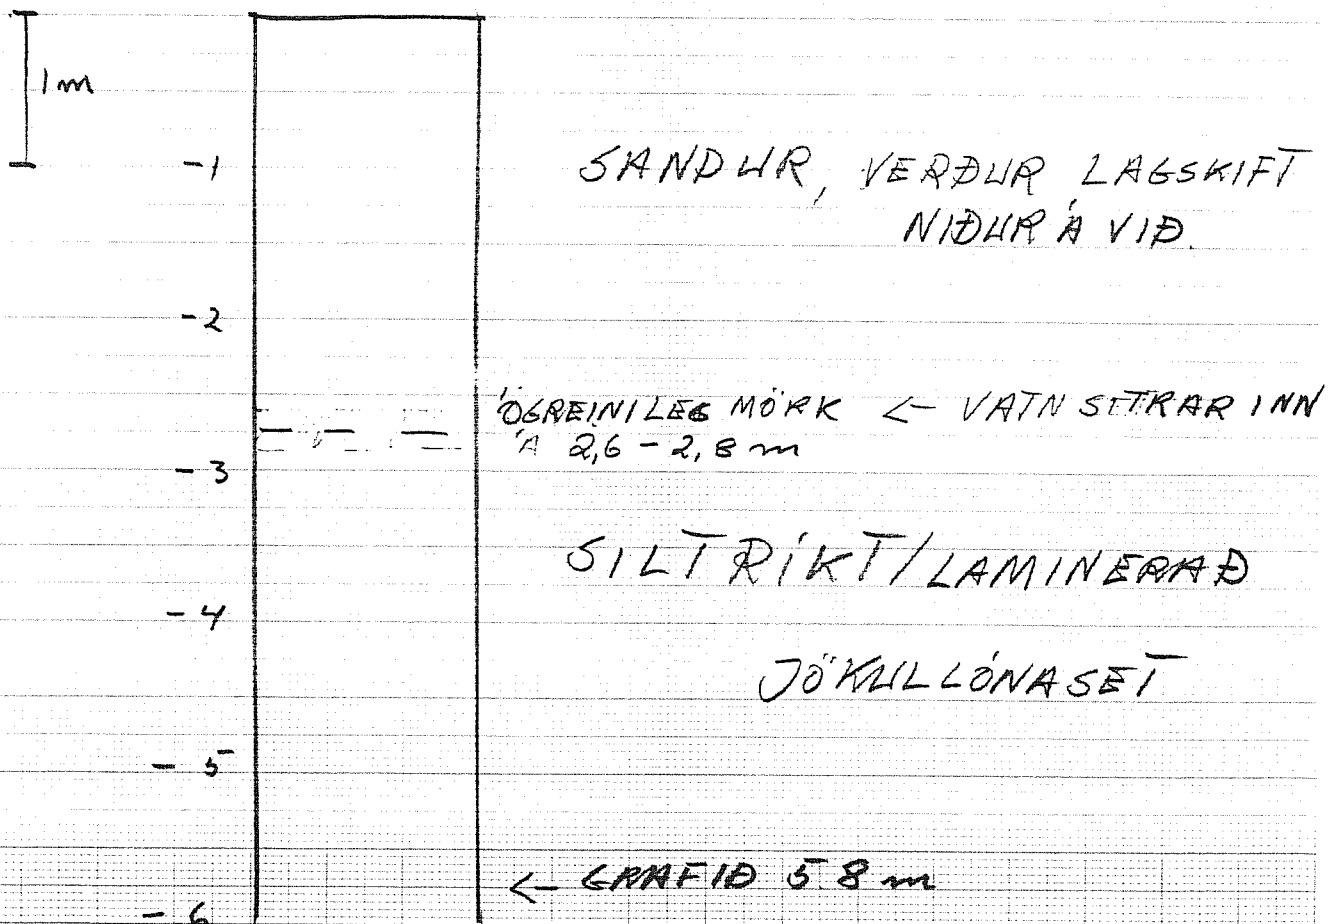 1m
-1
SANDUR, VERÐUR LAGSKIFT
NIÐUR Á VIÐ.
-2
ÓGREINILEG MÖRK ← VATN SITRAR INN
Á 2,6 - 2,8 m
-3
SILTRÍKT/LAMINERAÐ
-4
JÖKULLÓNASET
-5
← GRAFIÐ 5.8 m
-6